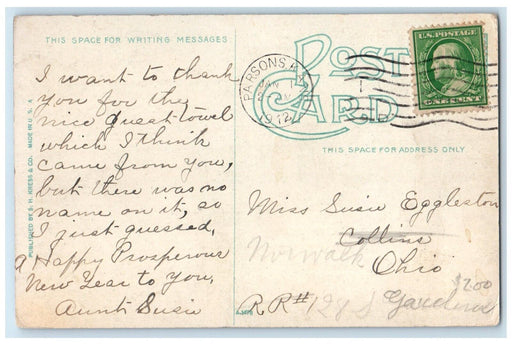 THIS SPACE FOR WRITING MESSAGES
POST
CARD
THIS SPACE FOR ADDRESS ONLY
U.S. POSTAGE
ONE CENT
PARSONS
JAN 1
1912
I want to thank
you for the
nice guest towel
which I think
came from you,
but there was no
name on it, so
I just guessed,
A Happy Prosperous
New Year to You,
Aunt Susie
Miss Susie Eggleston
Collins
Norwalk
Ohio
R R # 124 S
$2.00
PUBLISHED BY S. H. KRESS & CO. MADE IN U. S. A.